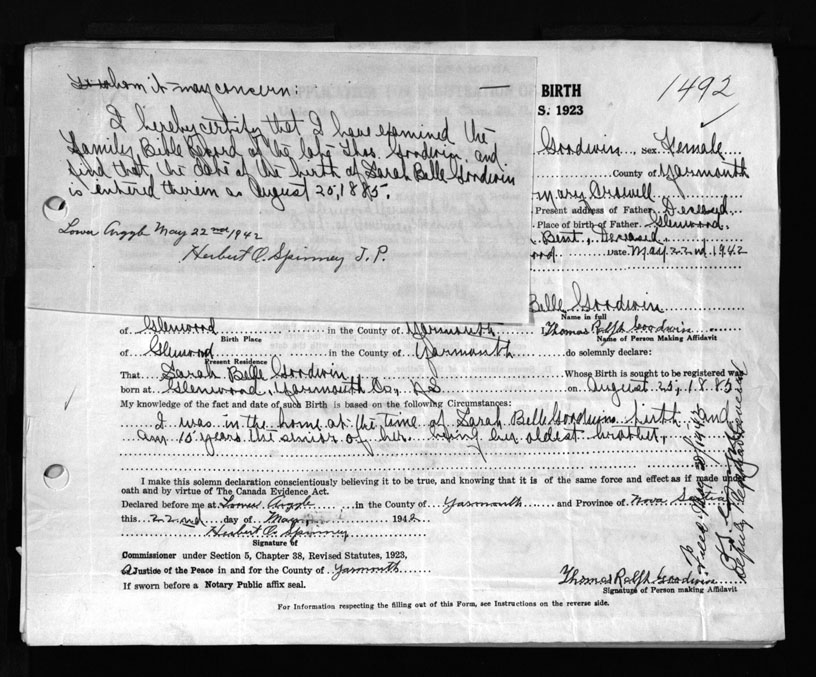 To whom it may concern:
I hereby certify that I have examined the
Family Bible Record of the late Thos. Goodwin and
find that the date of the birth of Sarah Belle Goodwin
is entered therein as August 25, 1885.
Lower Argyle May 22nd 1942
Herbert O. Spinney J. P.
BIRTH
S. 1923
1492
Goodwin, Sex Female
County of Yarmouth
Mary Crowell
Present address of Father Deceased
Place of birth of Father Glenwood
Bent, Deceased
Date May 22nd, 1942
Belle Goodwin
Name in full
of Glenwood in the County of Yarmouth I Thomas Ralph Goodwin
Birth Place Name of Person Making Affidavit
of Glenwood of Yarmouth do solemnly declare:
Present Residence
That Sarah Belle Goodwin Whose Birth is sought to be registered was
born at Glenwood, Yarmouth Co., N.S. on August 25, 1885
My knowledge of the fact and date of such Birth is based on the following Circumstances:
I was in the home at the time of Sarah Belle Goodwins birth, and
am 10 years the senior of her. being her oldest brother,
I make this solemn declaration conscientiously believing it to be true, and knowing that it is of the same force and effect as if made under
oath and by virtue of The Canada Evidence Act.
Declared before me at Lower Argyle in the County of Yarmouth and Province of Nova Scotia
this 22nd day of May 1942
Herbert O. Spinney
Signature of
Commissioner under Section 5, Chapter 38, Revised Statutes, 1923,
A Justice of the Peace in and for the County of Yarmouth
If sworn before a Notary Public affix seal.
Thomas Ralph Goodwin
Signature of Person making Affidavit
For Information respecting the filling out of this Form, see Instructions on the reverse side.